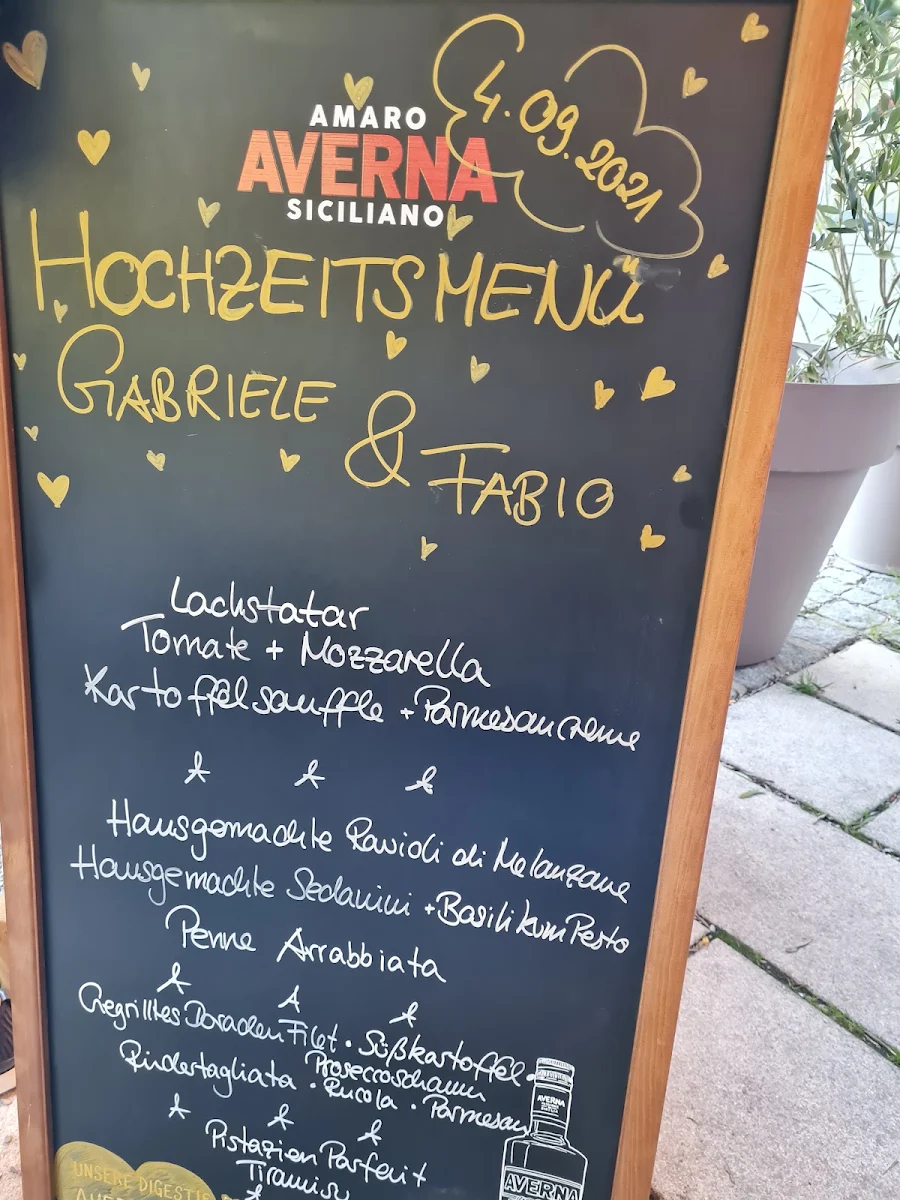 4.09.2021
AMARO
AVERNA
SICILIANO
HOCHZEITSMENÜ
GABRIELE
& FABIO
Lachstatar
Tomate + Mozzarella
Kartoffelsouffle + Parmesancreme
Hausgemachte Ravioli di Melanzane
Hausgemachte Sedanini + Basilikum Pesto
Penne Arrabbiata
Gegrilltes Doraden Filet · Süßkartoffel
Proseccoschaum
Rindertagliata · Rucola · Parmesan
Pistazien Parfait
Tiramisu
AVERNA
AVERNA
UNSERE DIGESTIF